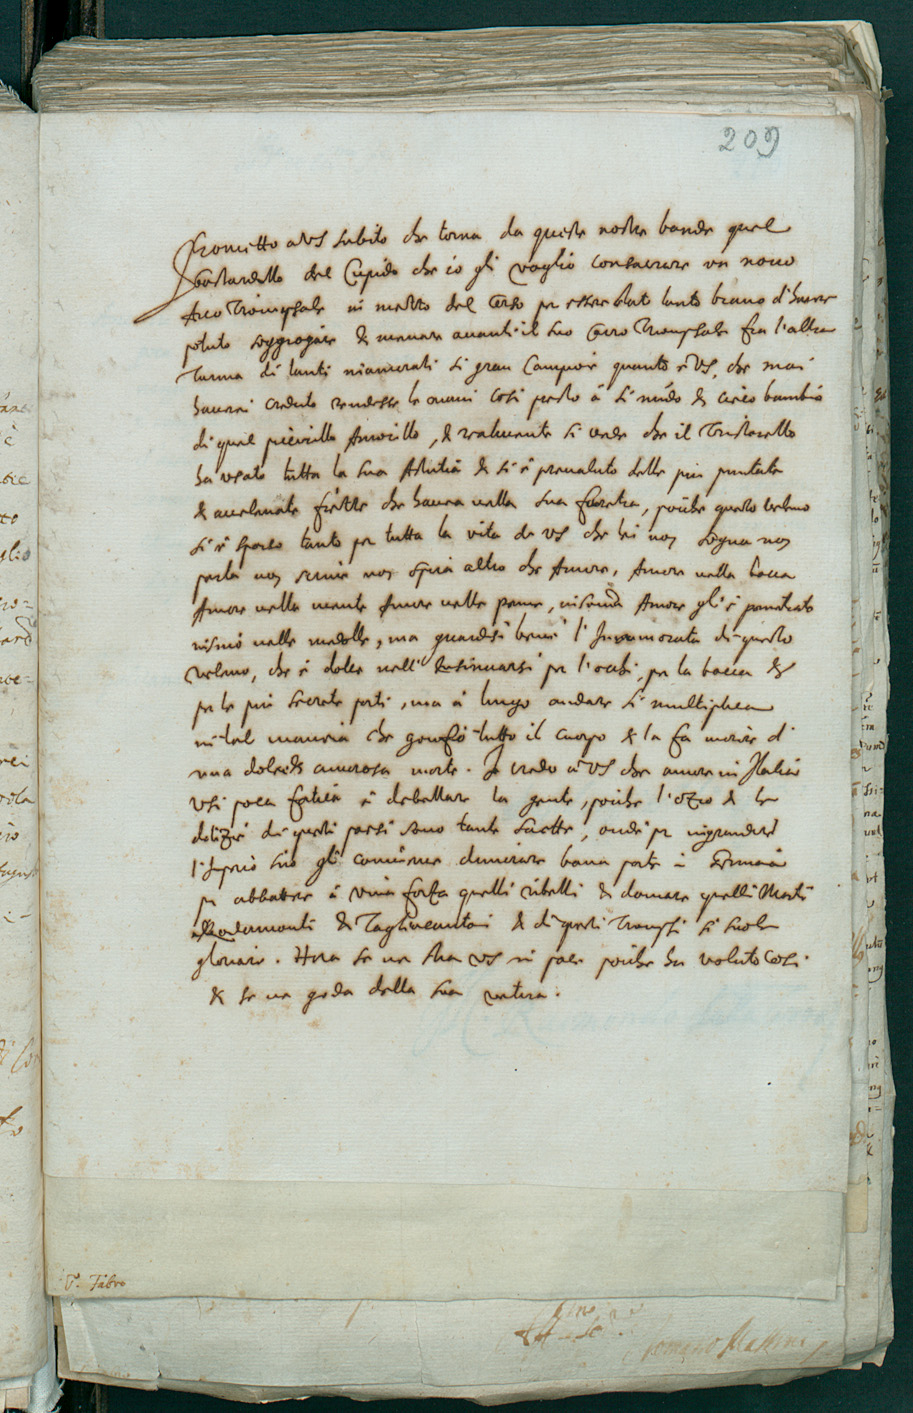 209
Prometto a VS subito che torna da queste nostre bande quel
bastardello del Cupido che io gli voglio consacrare un novo
Arco Triomphale in mezzo del Corso per essere stato tanto bravo d'havere
potuto soggiogare & menare avanti il suo Carro Triomphale fra l'altra
turma di tanti inamorati si gran Campione quanto è VS, che mai
haverei creduto rendesse le mani così presto à si nudo & cieco bambino
di quel piccirillo Amorillo, & realmente si vede che il Tristarello
ha usato tutta la sua Astutia & si è prevaluto delle piu puntate
& avelenate frezze che haveva nella sua faretra, poiche questo veleno
si è sparso tanto per tutta la vita de VS che lei non sogna non
parla non scrive non spira altro che Amore, Amore nella bocca
Amore nella mente Amore nelle penne, insomma Amore gli è penetrato
insino nelle medolle, ma guardisi bene l'Inamorato di questo
veleno, che è dolce nell'insinuarsi per l'occhi, per la bocca &
per le più secrete parti, ma à lungo andare si multiplica
in tal maniera che gonfia tutto il corpo & la fa morire d'
una dolce & amorosa morte. Io credo à VS che amore in Italia
usi poca fatica à debellare la gente, poiche l'ozio & le
delizie di questi paesi sono tante saette, onde per ingrandire
l'Imperio suo gli conviene dimorare bona parte in Germania
per abbattere à viva forza quelli ribelli & domare quelli Marti
& Rodamonti & Tagliacantoni & di questi Triomphi si suole
gloriare. Hora se ne stia VS in pace poiche ha voluto così
& se ne goda della sua ventura.
T. Fabro